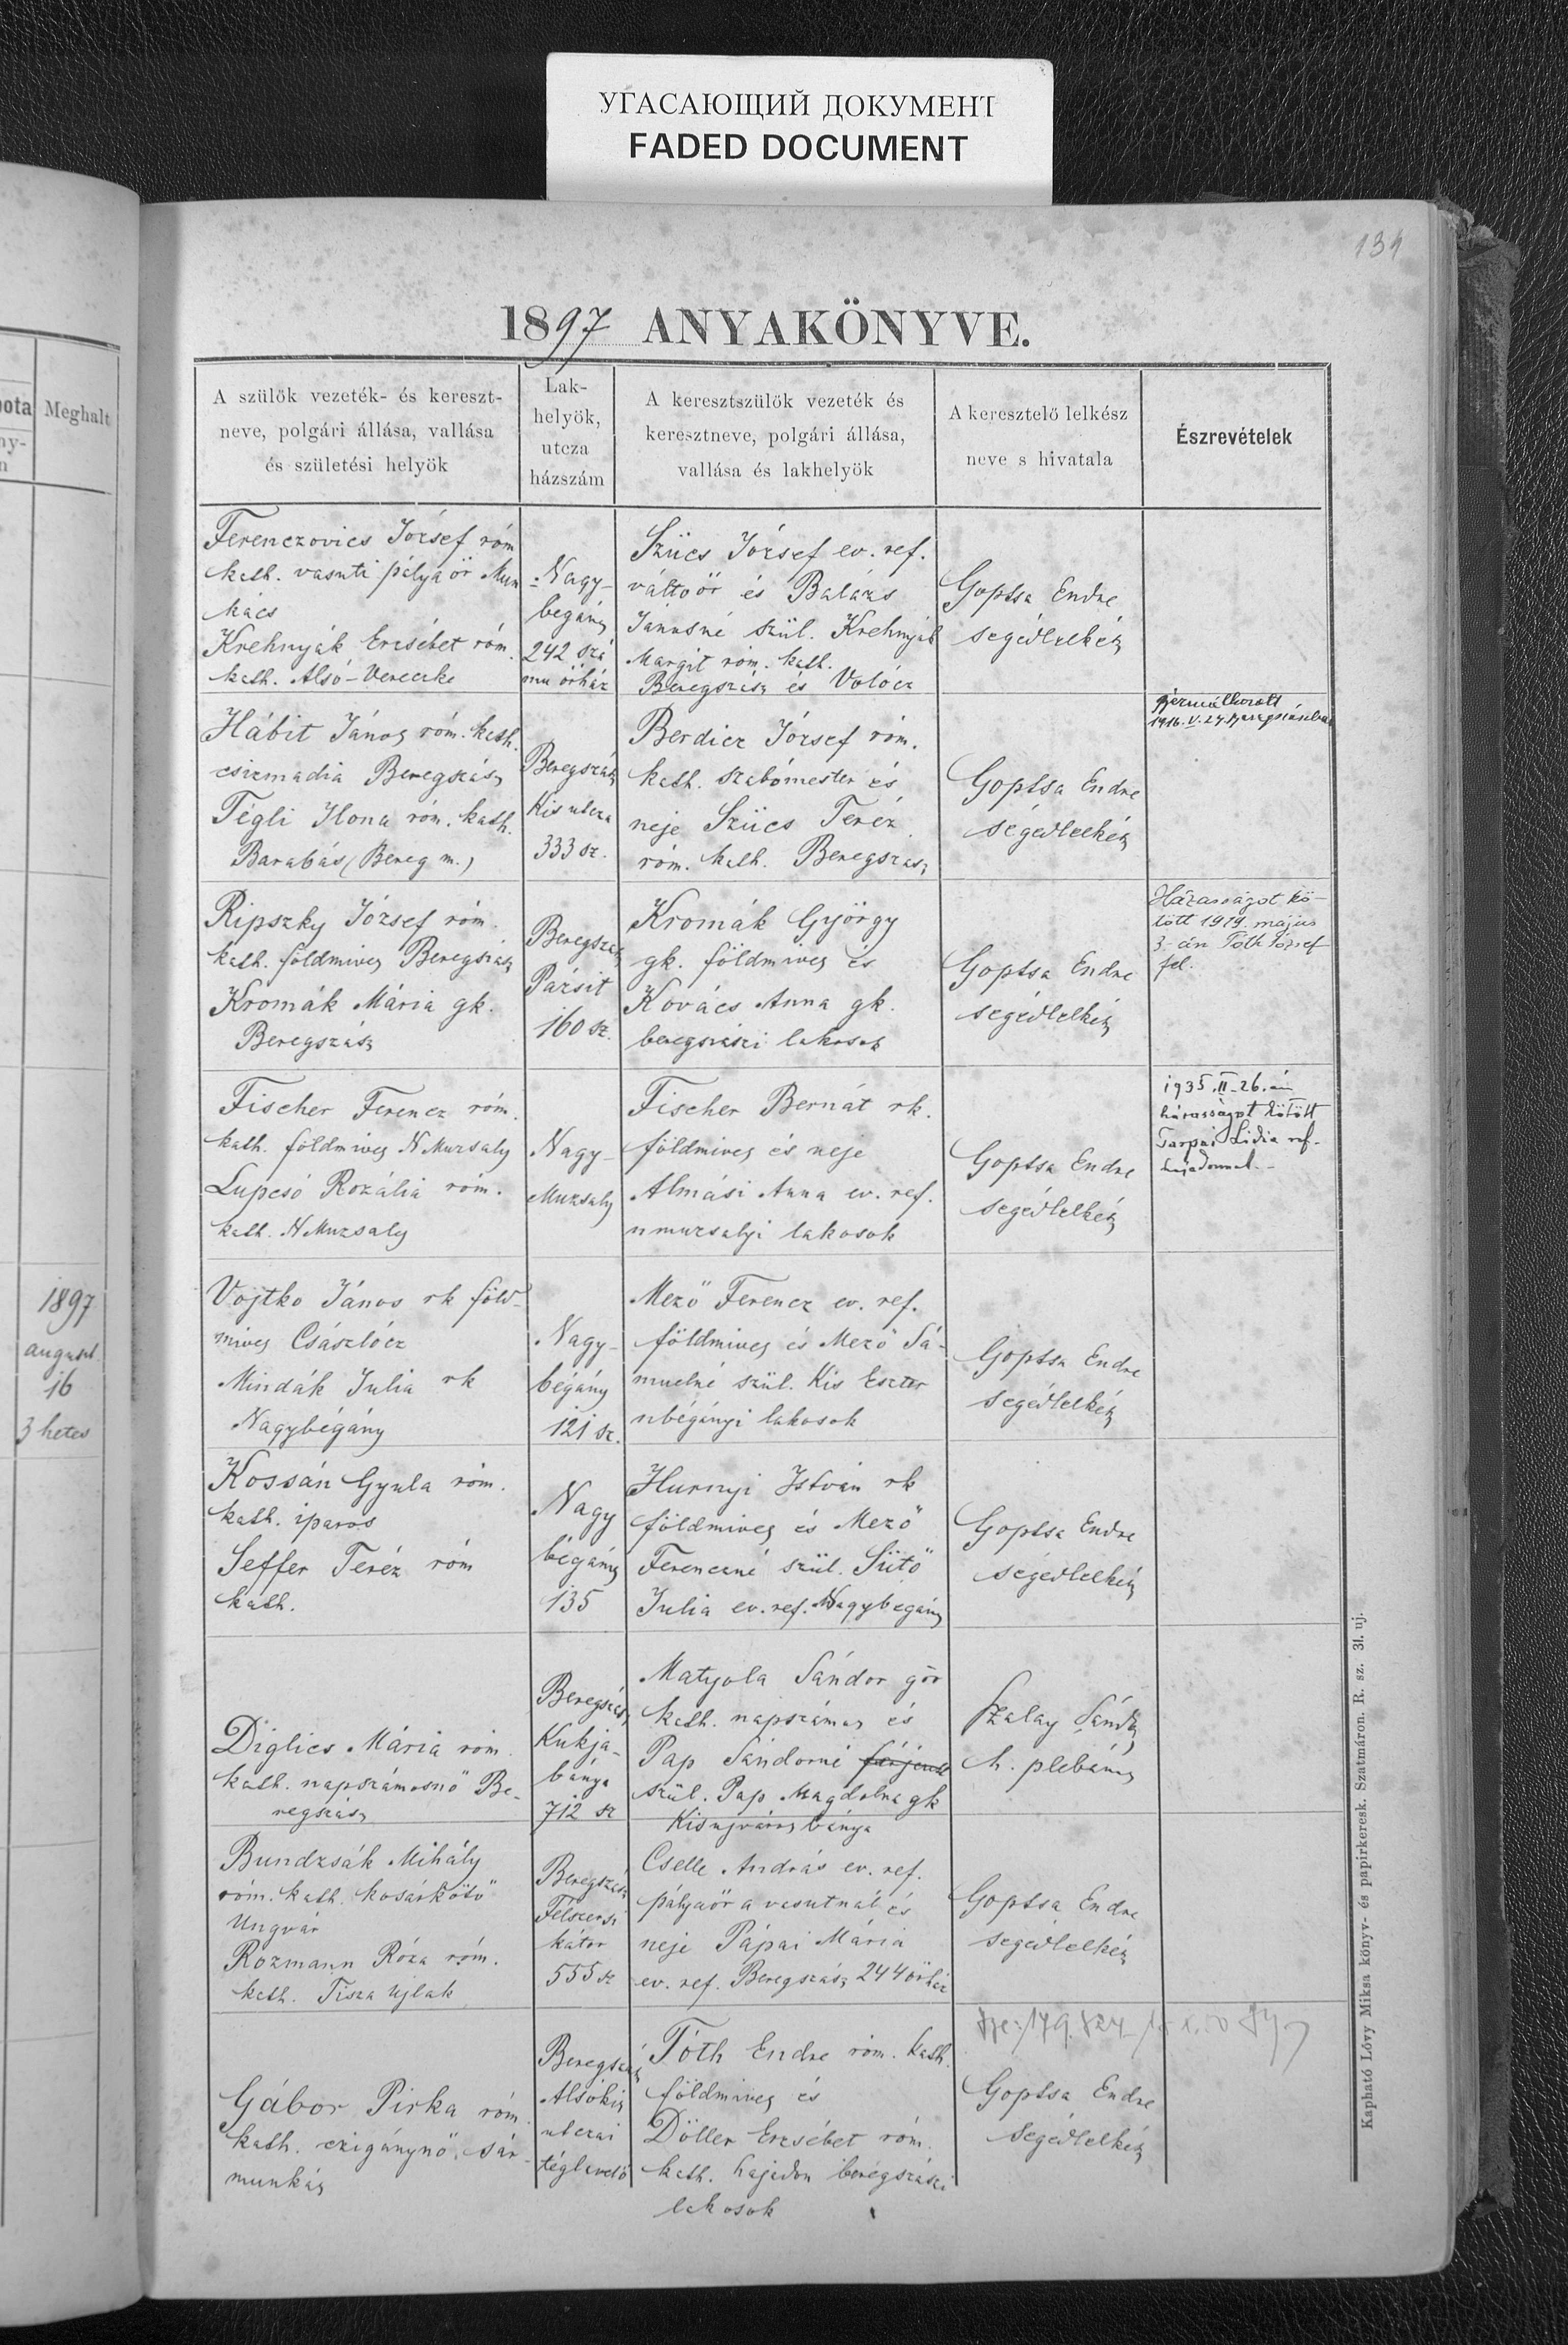 УГАСАЮЩИЙ ДОКУМЕНТ
FADED DOCUMENT
134
1897 ANYAKÖNYVE.
Meghalt
1897
august
16
3 hetes
A szülök vezeték- és kereszt-
neve, polgári állása, vallása
és születési helyök
Lak-
helyök,
utcza
házszám
A keresztszülök vezeték és
keresztneve, polgári állása,
vallása és lakhelyök
A keresztelő lelkész
neve s hivatala
Észrevételek
Ferenczovics József róm
kath. vasuti pályaőr Mun
kács
Krehnyák Erzsébet róm.
kath. Alsó-Vereczke
Nagy-
begány
242 szá
mu őrház
Szücs József ev. ref.
váltóőr és Balázs
Jánosné szül. Krehnyák
Margit róm. kath.
Beregszász és Volócz
Goptsa Endre
segédlelkész
Hábit János róm. kath.
csizmadia Beregszász
Tégli Ilona róm. kath.
Barabás (Bereg m.)
Beregszász
Kis utcza
333 sz.
Berdicz József róm.
kath. szabómester és
neje Szücs Teréz
róm. kath. Beregszász
Goptsa Endre
segédlelkész
bérmálkozott
1916. V. 24. Beregszászban
Ripszky József róm.
kath. földmives Beregszász
Kromák Mária gk.
Beregszász
Beregszász
Pázsit
160 sz.
Kromák György
gk. földmives és
Kovács Anna gk.
beregszászi lakosok
Goptsa Endre
segédlelkész
Házasságot kö-
tött 1919. május
3-án Tóth József
fel.
Fischer Ferencz róm.
kath. földmives N Muzsaly
Lupcsó Rozália róm.
kath. N Muzsaly
Nagy-
Muzsaly
Fischer Bernát rk.
földmives és neje
Almási Anna ev. ref.
nmuzsalyi lakosok
Goptsa Endre
segédlelkész
1935. II-26.án
házasságot kötött
Tarpai Lidia ref.
hajadonnal.
Vojtko János rk föld-
mives Császlócz
Mindák Julia rk
Nagybégány
Nagy-
bégány
121 sz.
Mező Ferencz ev. ref.
földmives és Mező Sá-
muelné szül. Kis Eszter
nbégányi lakosok
Goptsa Endre
segédlelkész
Kossán Gyula róm.
kath. iparos
Seffer Teréz róm
kath.
Nagy
bégány
135
Hurnyi István rk
földmives és Mező
Ferenczné szül. Sütő
Julia ev. ref. Nagybegány
Goptsa Endre
segédlelkész
Diglics Mária róm.
kath. napszámosnő Be-
regszász
Beregszász
Kukja-
bánya
712 sz
Matyola Sándor gör
kath. napszámos és
Pap Sándorné férjezett
szül. Pap Magdolna gk
Kisujváros bánya
Szalay Sándor
h. plebános
Bundzsák Mihály
róm. kath. kosárkötő
Ungvár
Rozmann Róza róm.
kath. Tisza Ujlak
Beregszász
Felszersi
kátor
555 sz
Cselle András ev. ref.
pályaőr a vasutnál és
neje Pápai Mária
ev. ref. Beregszász 244 őrház
Goptsa Endre
segédlelkész
Gábor Pirka róm
kath. czigánynő, sár-
munkás
Beregszász
Alsókis
utczai
téglavető
Tóth Endre róm. kath.
földmives és
Döller Erzsébet róm.
kath. hajadon beregszászi
lakosok
Goptsa Endre
segédlelkész
Kapható Lövy Miksa könyv- és papirkeresk. Szatmáron. R. sz. 31. uj.